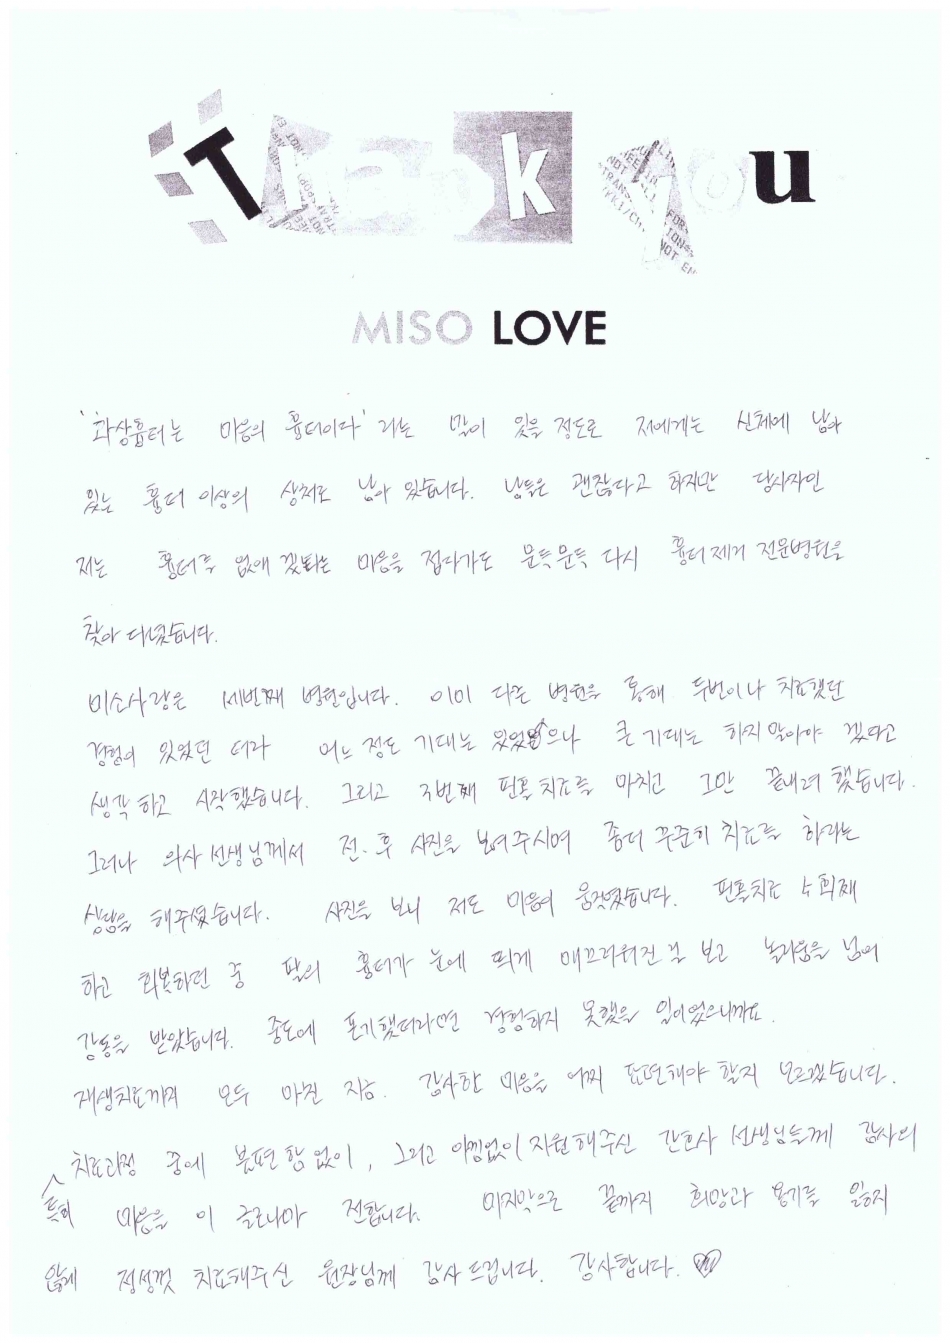 Thank you
MISO LOVE
'화상흉터는 마음의 흉터이다' 라는 말이 있을 정도로 저에게는 신체에 남아
있는 흉터 이상의 상처로 남아 있습니다. 남들은 괜찮다고 하지만 당사자인
저는 흉터를 없애겠다는 마음을 접다가도 문득문득 다시 흉터제거 전문병원을
찾아 다녔습니다.
미소사랑은 세번째 병원입니다. 이미 다른 병원을 통해 두번이나 치료했던
경험이 있었던 터라 어느 정도 기대는 있었으나 큰 기대는 하지 말아야 겠다고
생각하고 시작했습니다. 그리고 3번째 핀홀치료를 마치고 그만 끝내려 했습니다.
그러나 의사 선생님께서 전.후 사진을 보여주시며 좀더 꾸준히 치료를 하라는
상담을 해주셨습니다. 사진을 보니 저도 마음이 움직였습니다. 핀홀치료 4회째
하고 회복하던 중 팔의 흉터가 눈에 띄게 매끄러워진 걸 보고 놀라움을 넘어
감동을 받았습니다. 중도에 포기했더라면 경험하지 못했을 일이었으니까요.
재생치료까지 모두 마친 지금. 감사한 마음을 어찌 표현해야 할지 모르겠습니다.
특히 치료과정 중에 불편함없이, 그리고 아낌없이 지원해주신 간호사 선생님들께 감사의
마음을 이 글로나마 전합니다. 마지막으로 끝까지 희망과 용기를 잃지
않게 정성껏 치료해주신 원장님께 감사 드립니다. 감사합니다.